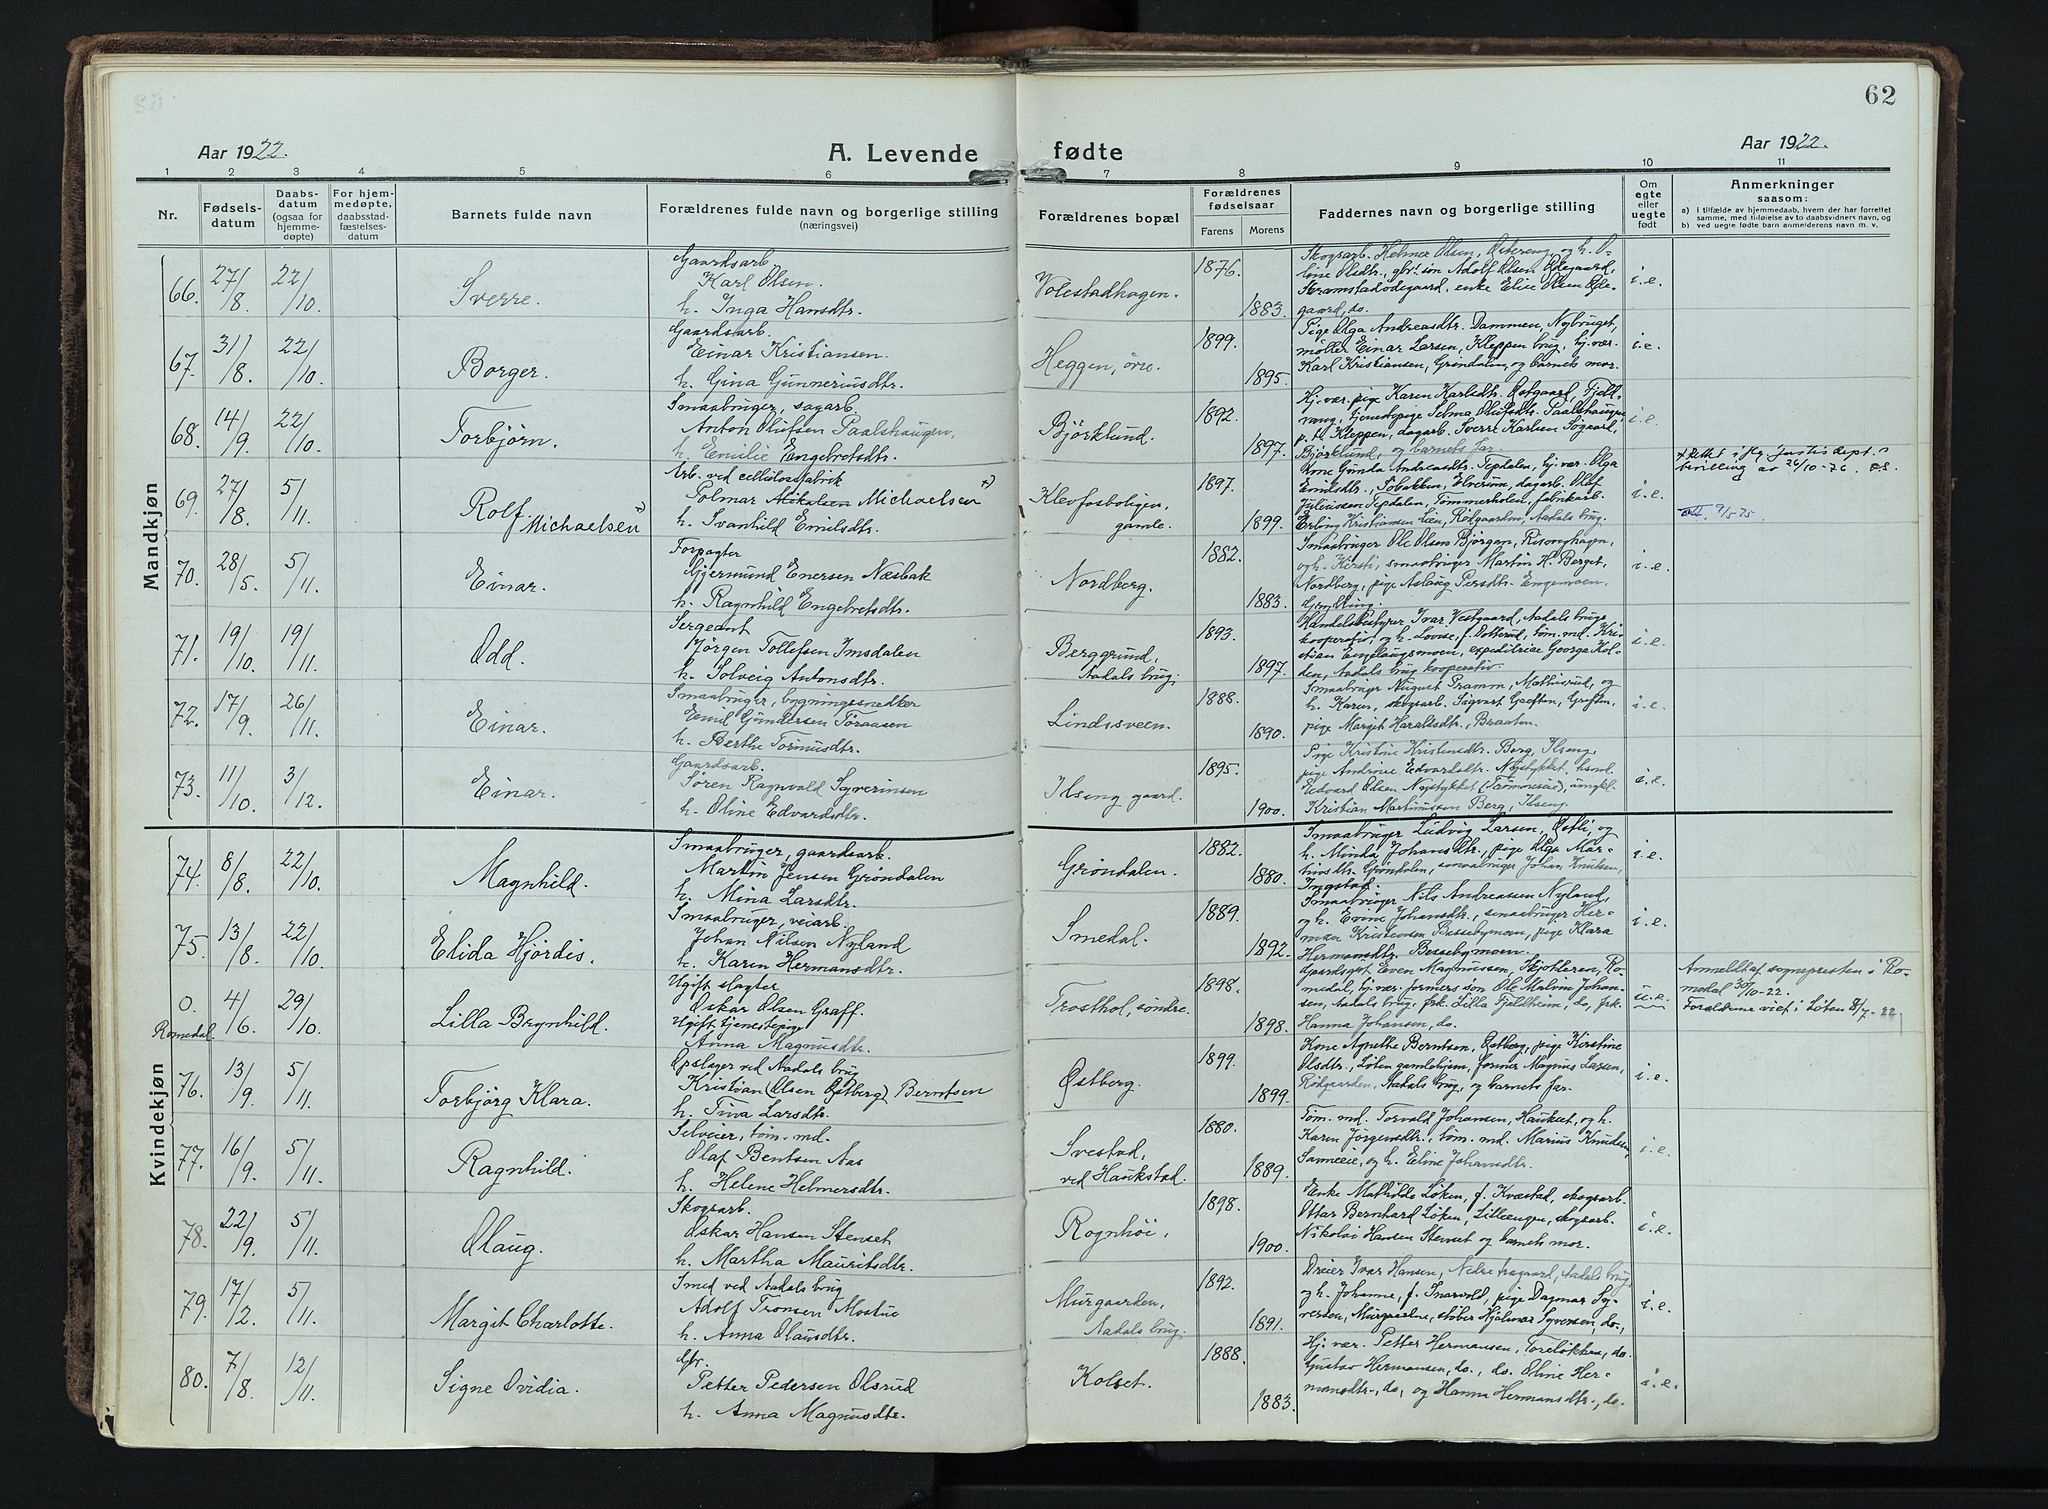 62
Aar 1922.
A. Levende fødte
Aar 1922.
1 2 3 4 5 6 7 8 9 10 11
Nr.
Fødsels-
datum
Daabs-
datum
(ogsaa for
hjemme-
døpte)
For hjem-
medøpte,
daabsstad-
fæstelses-
datum
Barnets fulde navn
Forældrenes fulde navn og borgerlige stilling
(næringsvei)
Forældrenes bopæl
Forældrenes
fødselsaar
Farens Morens
Faddernes navn og borgerlige stilling
Om
egte
eller
uegte
født
Anmerkninger
saasom:
a) I tilfælde av hjemmedaab, hvem der har forrettet
samme, med tilføielse av to daabsvidners navn, og
b) ved uegte fødte barn anmelderens navn m. v.
Mandkjøn
66. 27/8. 22/10. Sverre.
Gaardsarb.
Karl Olsen.
h. Inga Hansdtr.
Volestadhagen. 1876. 1883.
Skogsarb. Helmer Olsen, Østereng, og h. O-
line Olsdtr., gbr. søn Adolf Olsen Ødegaard,
Stramstadødegaard, enke Elise Olsen Øde-
gaard, do.
i.e.
67. 31/8. 22/10. Borger.
Gaardsarb.
Einar Kristiansen.
h. Gina Gunneriusdtr.
Heggen, øvre. 1899. 1895.
Pige Olga Andreasdtr. Dammen, Nybruget,
møller Einar Larsen, Kleppen brug, hj. vær.
Karl Kristiansen, Grøndalen, og barnets mor.
i.e.
68. 14/9. 22/10. Torbjørn.
Smaabruger, sagarb.
Anton Olufsen Paalshaugen,
h. Emilie Engebretsdtr.
Björklund. 1892. 1897.
Hj. vær. pige Karen Karlsdtr. Østgaard, Fjeld-
vang, tjenestepige Selma Olufsdtr. Paalshaugen
p. t. Kleppen, dagarb. Sverre Karlsen Sogaard,
Björklund, og barnets far.
i.e.
69. 27/8. 5/11. Rolf. Michaelsen x)
Arb. ved cellulosefabrik
Solmar Mikalsen Michaelsen x)
h. Svanhild Emilsdtr.
Klevfosboligen,
gamle. 1897. 1899.
Kone Gunda Andreasdtr. Tepdalen, hj. vær. Olga
Emilsdtr., Fobakken, Elverum, dagarb. Olaf
Julviussen Tepdalen, Tømmerholen, fabrikarb.
Erling Kristiansen Lien, Rödgaarden, Aadals brug.
i.e.
x Rettet i flg. Justisdept.s
bevilling av 26/10-76.
9/5 75
70. 28/5. 5/11. Einar.
Forpagter
Gjermund Enersen Næsbak
h. Ragnhild Engebretsdtr.
Nordberg. 1882. 1883.
Smaabruger Ole Olsen Bjørgan, Risonghagen,
og h. Kirsti, smaabruger Martin H. Berget,
Nordberg, pige Aslaug Persdtr. Engemoen,
i.e.
71. 19/10. 19/11. Odd.
Sergeant
Jørgen Tollefsen Imsdalen
h. Solveig Antonsdtr.
Berggrund,
Aadals brug. 1893. 1897.
Handelsbestyrer Ivar Vestgaard, Aadals brugs
kooperativ, og h. Lovise, f. Dotterud, tøm. md. Kri-
stian Englaugsmoen, expeditrice Georga Kol-
den, Aadals brug kooperativ.
i.e.
72. 17/9. 26/11. Einar.
Smaabruger, bygningssnedker
Emil Gundersen Toraasen
h. Berthe Tormusdtr.
Lindssveen. 1888. 1890.
Smaabruger August Pramm, Mathisrud, og
h. Karen, skogsarb. Sigvart Graften, Graften,
pige Margit Haraldsdtr., Braaten.
i.e.
73. 11/10. 3/12. Einar.
Gaardsarb.
Søren Ragnvald Syverinsen
h. Oline Edvardsdtr.
Ilseng gaard. 1895. 1900.
Pige Kristine Kristensdtr. Berg, Ilseng,
pige Andrine Edvardsdtr. Nystykket, hsmd.
Edvard Olsen Nystykket, ungkl.
Kristian Martinussen Berg, Ilseng.
i.e.
Kvindekjøn
74. 8/8. 22/10. Magnhild.
Smaabruger, gaardsarb.
Martin Jensen Grøndalen
h. Mina Larsdtr.
Grøndalen. 1882. 1880.
Smaabruger Ludvig Larsen, Østli, og
h. Minda Johansdtr., pige Olga Mar-
tinsdtr. Grøndalen, smaabruger Johan Knutsen,
Ingstad.
i.e.
75. 13/8. 22/10. Elida Hjørdis.
Smaabruger, veiarb.
Johan Nilsen Nyland
h. Karen Hermansdtr.
Smedal. 1889. 1892.
Smaabruger Nils Andreassen Nyland,
og h. Evine Johansdtr., smaabruger Her-
man Kristensen Bessebymoen, pige Klara
Hermansdtr. Bessebymoen.
i.e.
0. Romedal. 4/6. 29/10. Lilla Brynhild.
Ugift slagter
Oskar Olsen Graff.
Ugift tjenestepige
Anna Magnusdtr.
Trosthol, søndre. 1898. 1898.
Opardsgut Even Magnussen, Skjotteren, Ro-
medal, hj. vær. formers søn Ole Malvin Johan-
sen, Aadals brug, frk. Lilla Fjeldheim, do, frk.
Hanna Johansen, do.
u.e.
Anmeldt af sognepresten i Ro-
medal 30/10-22.
Forældrene viet i Løten 8/7-22
76. 13/9. 5/11. Torbjørg Klara.
Opslager ved Aadals brug
Kristian (Olsen Østberg) Berntsen
h. Tina Larsdtr.
Østberg. 1899. 1899.
Kone Agnethe Berntsen, Østberg, pige Kirstine
Olsdtr., Løten gamlehjem, former Magnus Larsen,
Rödgaarden, Aadals brug, og barnets far.
i.e.
77. 16/9. 5/11. Ragnhild.
Selveier, tøm. md.
Olaf Bentsen Aas
h. Helene Helmersdtr.
Svestad,
ved Haukstad. 1880. 1889.
Tøm. md. Torvald Johansen, Haukset, og h.
Karen Jørgensdtr., tøm. md. Marius Knudsen,
Sanneeie, og h. Eline Johansdtr.
i.e.
78. 22/9. 5/11. Olaug.
Skogsarb.
Oskar Hansen Stenset
h. Martha Mauritsdtr.
Rognhøi, 1898. 1900.
Enke Mathilde Løken, f. Kvæstad, skogsarb.
Ottar Bernhard Løken, Lilleengen, skogsarb.
Nikolai Hansen Stenset og barnets mor.
i.e.
79. 17/2. 5/11. Margit Charlotte.
Smed ved Aadals brug
Adolf Tronsen Mostue
h. Anna Olausdtr.
Murgaarden,
Aadals brug. 1892. 1891.
Dreier Ivar Hansen, Nedre tragaard, Aadals brug,
og h. Johanne, f. Snarvold, pige Dagmar Sy-
versen, Murgaarden, støber Hjalmar Syversen, do.,
i.e.
80. 7/8. 12/11. Signe Ovidia.
Gbr.
Petter Pedersen Olsrud
h. Anna Magnusdtr.
Kolset. 1888. 1883.
Hj. vær. Petter Hermansen, Toreløkken, do.
Gustav Hermansen, do., do. Oline Her-
mansdtr., do, og Hanna Hermansdtr., do.
i.e.